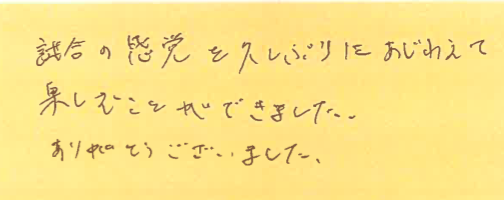 試合の感覚を久しぶりにあじわえて
楽しむことができました。
ありがとうございました、